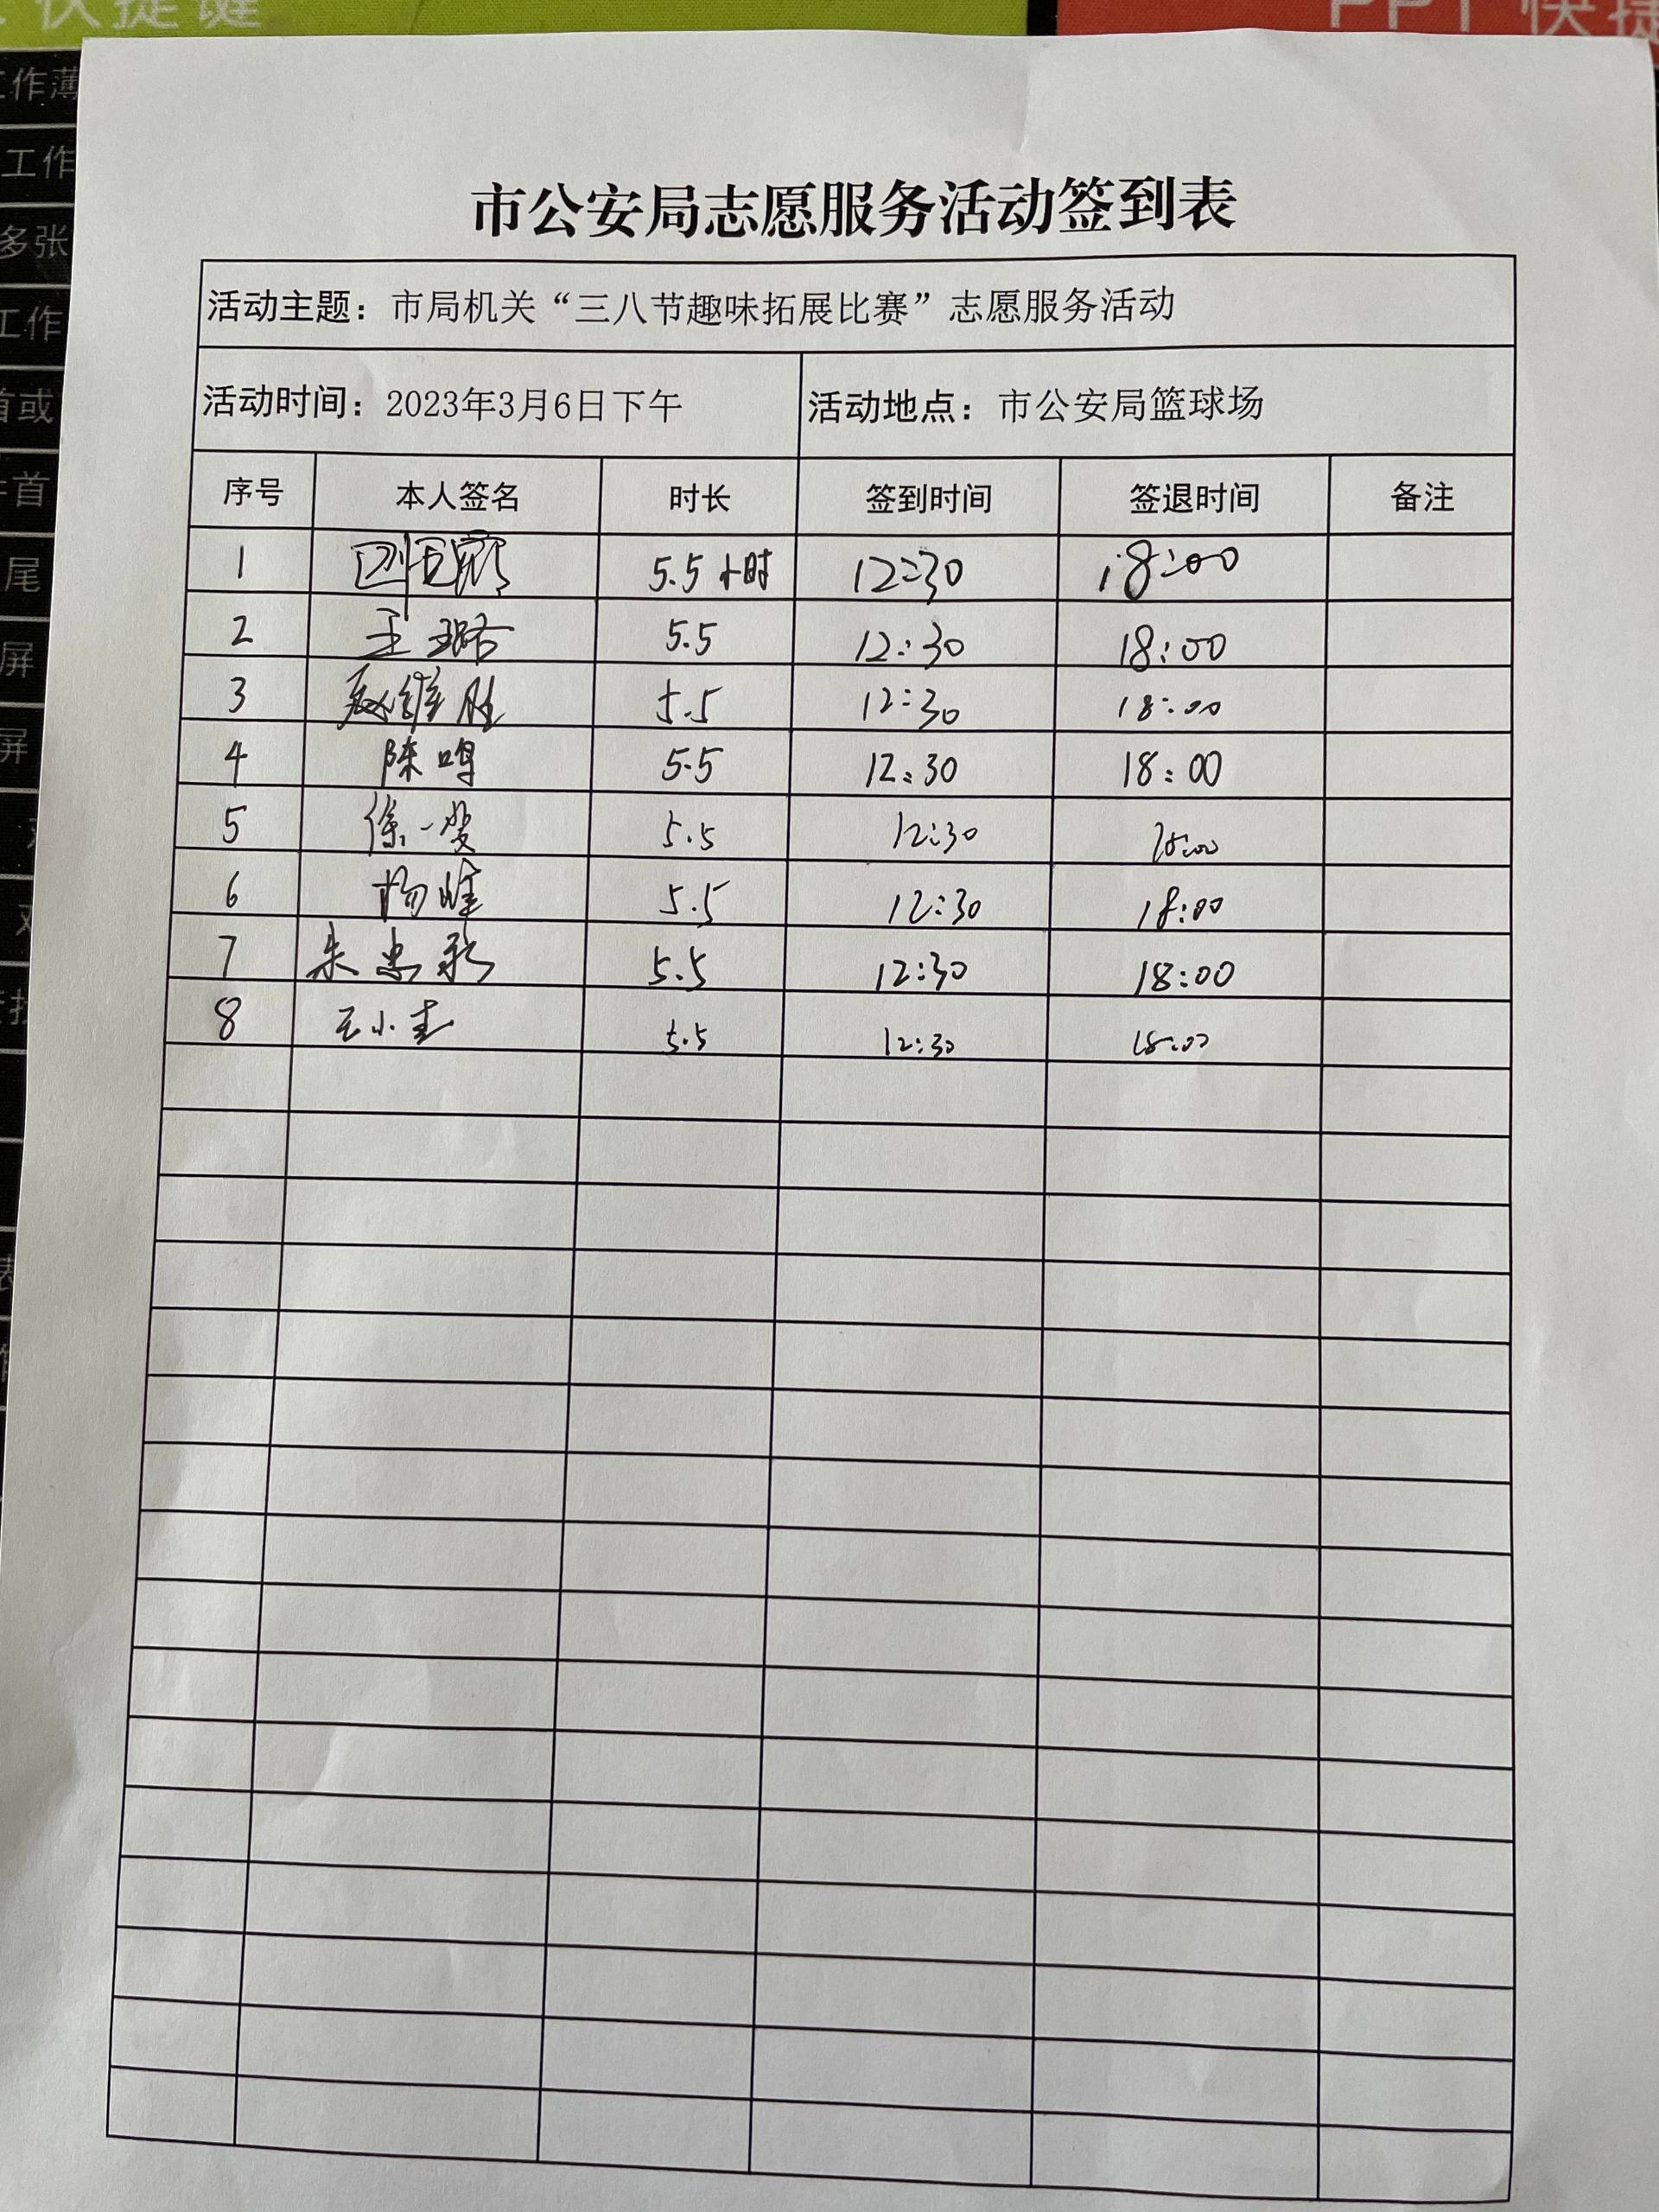 快捷键
PPT 快捷
工作薄
工作
多张
工作
首或
首
尾
屏
屏
市公安局志愿服务活动签到表
活动主题：市局机关“三八节趣味拓展比赛”志愿服务活动
活动时间：2023年3月6日下午 活动地点：市公安局篮球场
序号 本人签名 时长 签到时间 签退时间 备注
1 5.5小时 12:30 18:00
2 王璐 5.5 12:30 18:00
3 赵维胜 5.5 12:30 18:00
4 陈鸣 5.5 12:30 18:00
5 徐一 5.5 12:30 18:00
6 杨 5.5 12:30 18:00
7 朱忠 5.5 12:30 18:00
8 王小 5.5 12:30 18:00